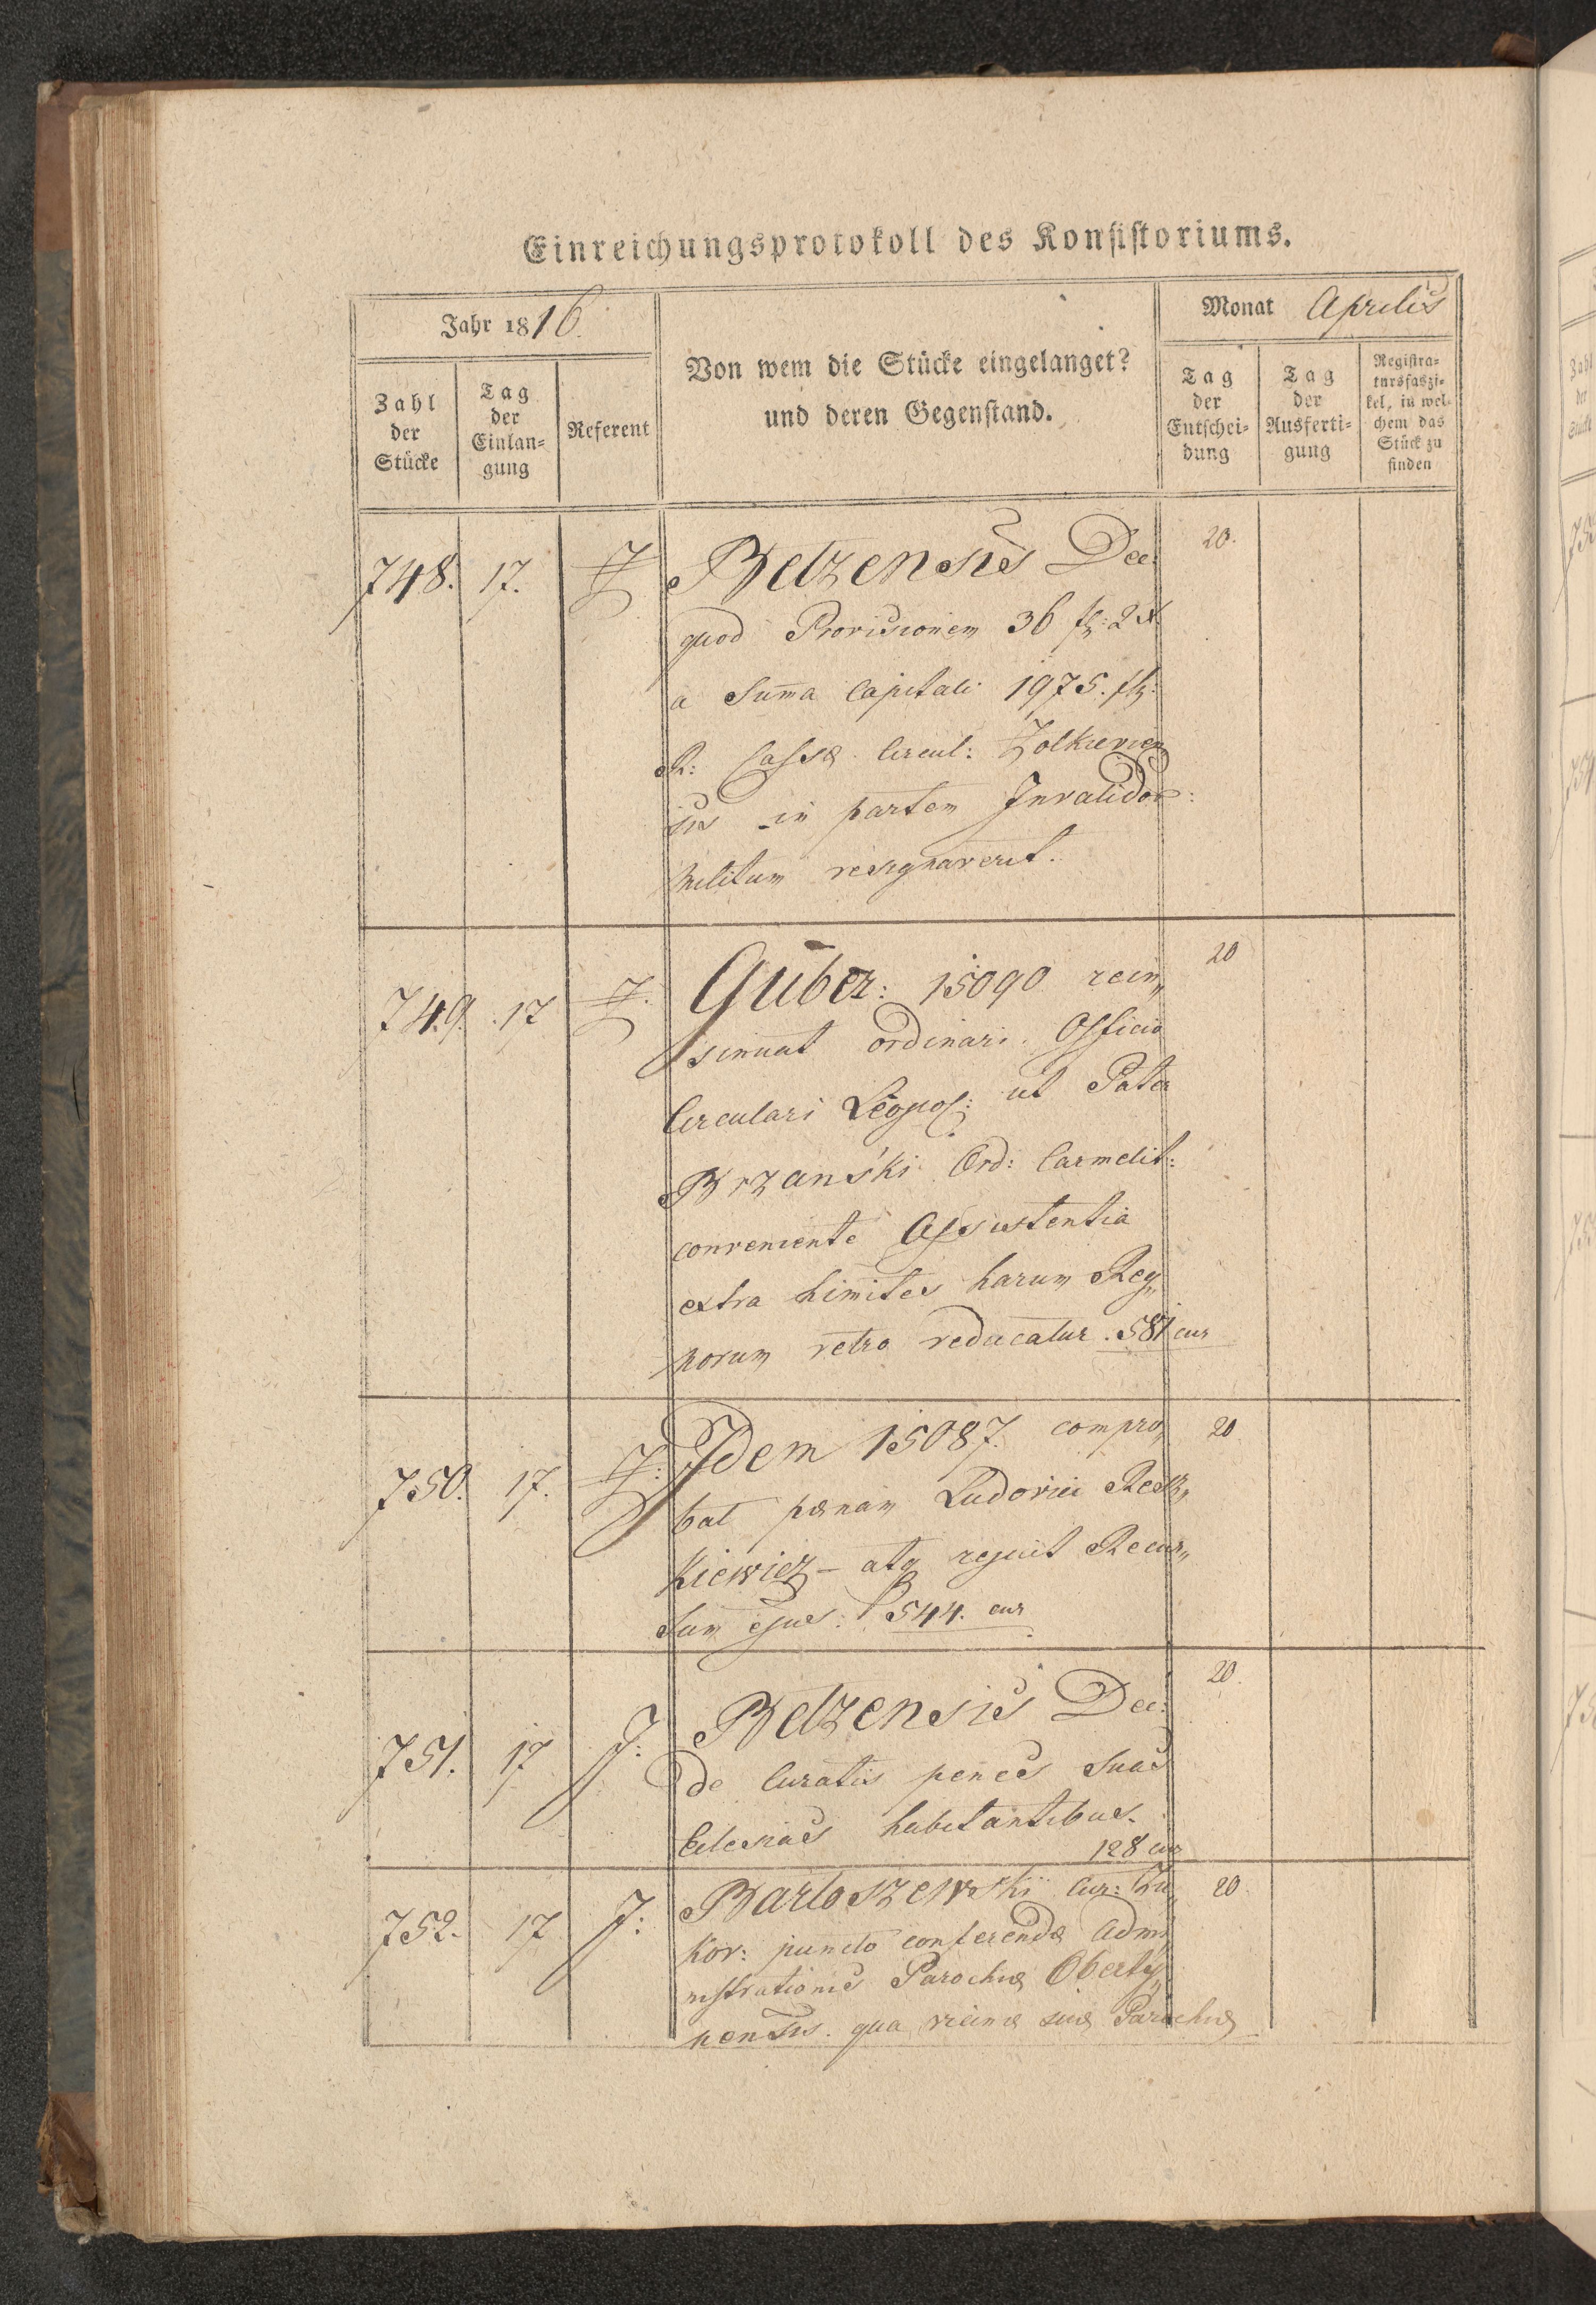 Einreichungsprotokoll des Konsistoriums.
Jahr 1816.
Monat Aprilis
Zahl der Stücke
Tag der Einlan= gung
Referent
Von wem die Stücke eingelanget?
und deren Gegenstand.
Tag der Entschei= dung
Tag der Ausferti= gung
Registra= tursfaszi= kel, in wel= chem das Stück zu finden
748. 17. Betzensis Dec: 20.
quod Provisionem 36 f: 2 x
a Suma Capitali 1975. f:
R: Cassæ Circul: Zolkievien
sis in partem Invalidor:
militum resignaverit.
749. 17 Guber: 15090 rein„ 20
sinuat ordinari Officio
Circulari Leopol: ut Pater
Brzański Ord: Carmelit:
conveniente Assistentia
extra limites harum Reg„
norum retro reducatur. 587 cur
750. 17. Idem 15087. compro„ 20
bat pænam Ludovici Resz„
kiewicz – atq rejicit Recur„
sum ejus. 544. cur
751. 17 J: Betzensis Dec: 20.
de Curatis penes suas
Eclesias habitantibus.
128 cur
752. 17 J: Bartoszewski Cur: Zu 20.
kor: puncto conferendæ Admi
nistrationis Parochiæ Oberty„
nensis. qua vicinæ suæ Parochiæ